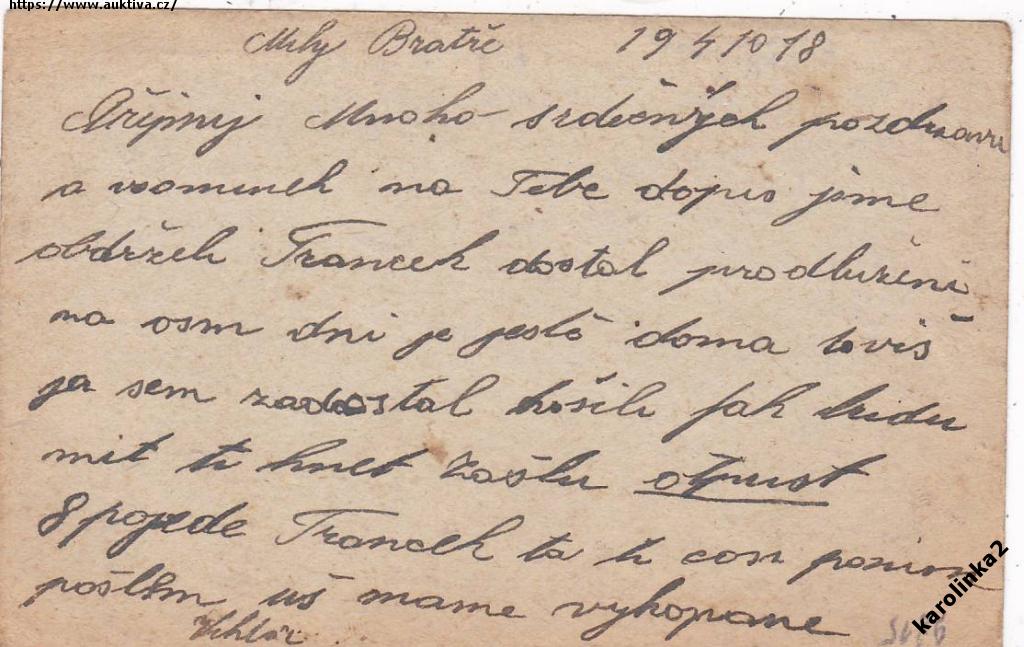 https://www.auktiva.cz/
Milý Bratře 19 4/10 18
Přijmij Mnoho srdečných pozdravu
a vspominek na Tebe dopis jsme
obdrželi Francek dostal prodlužení
na osm dni je ještě doma to viš
ja sem zadostal košili jak budu
mit ti hnet zašlu otpust
8 pojede Francek ta ti cosi
pošlem uš mame vykopane
karolinka2